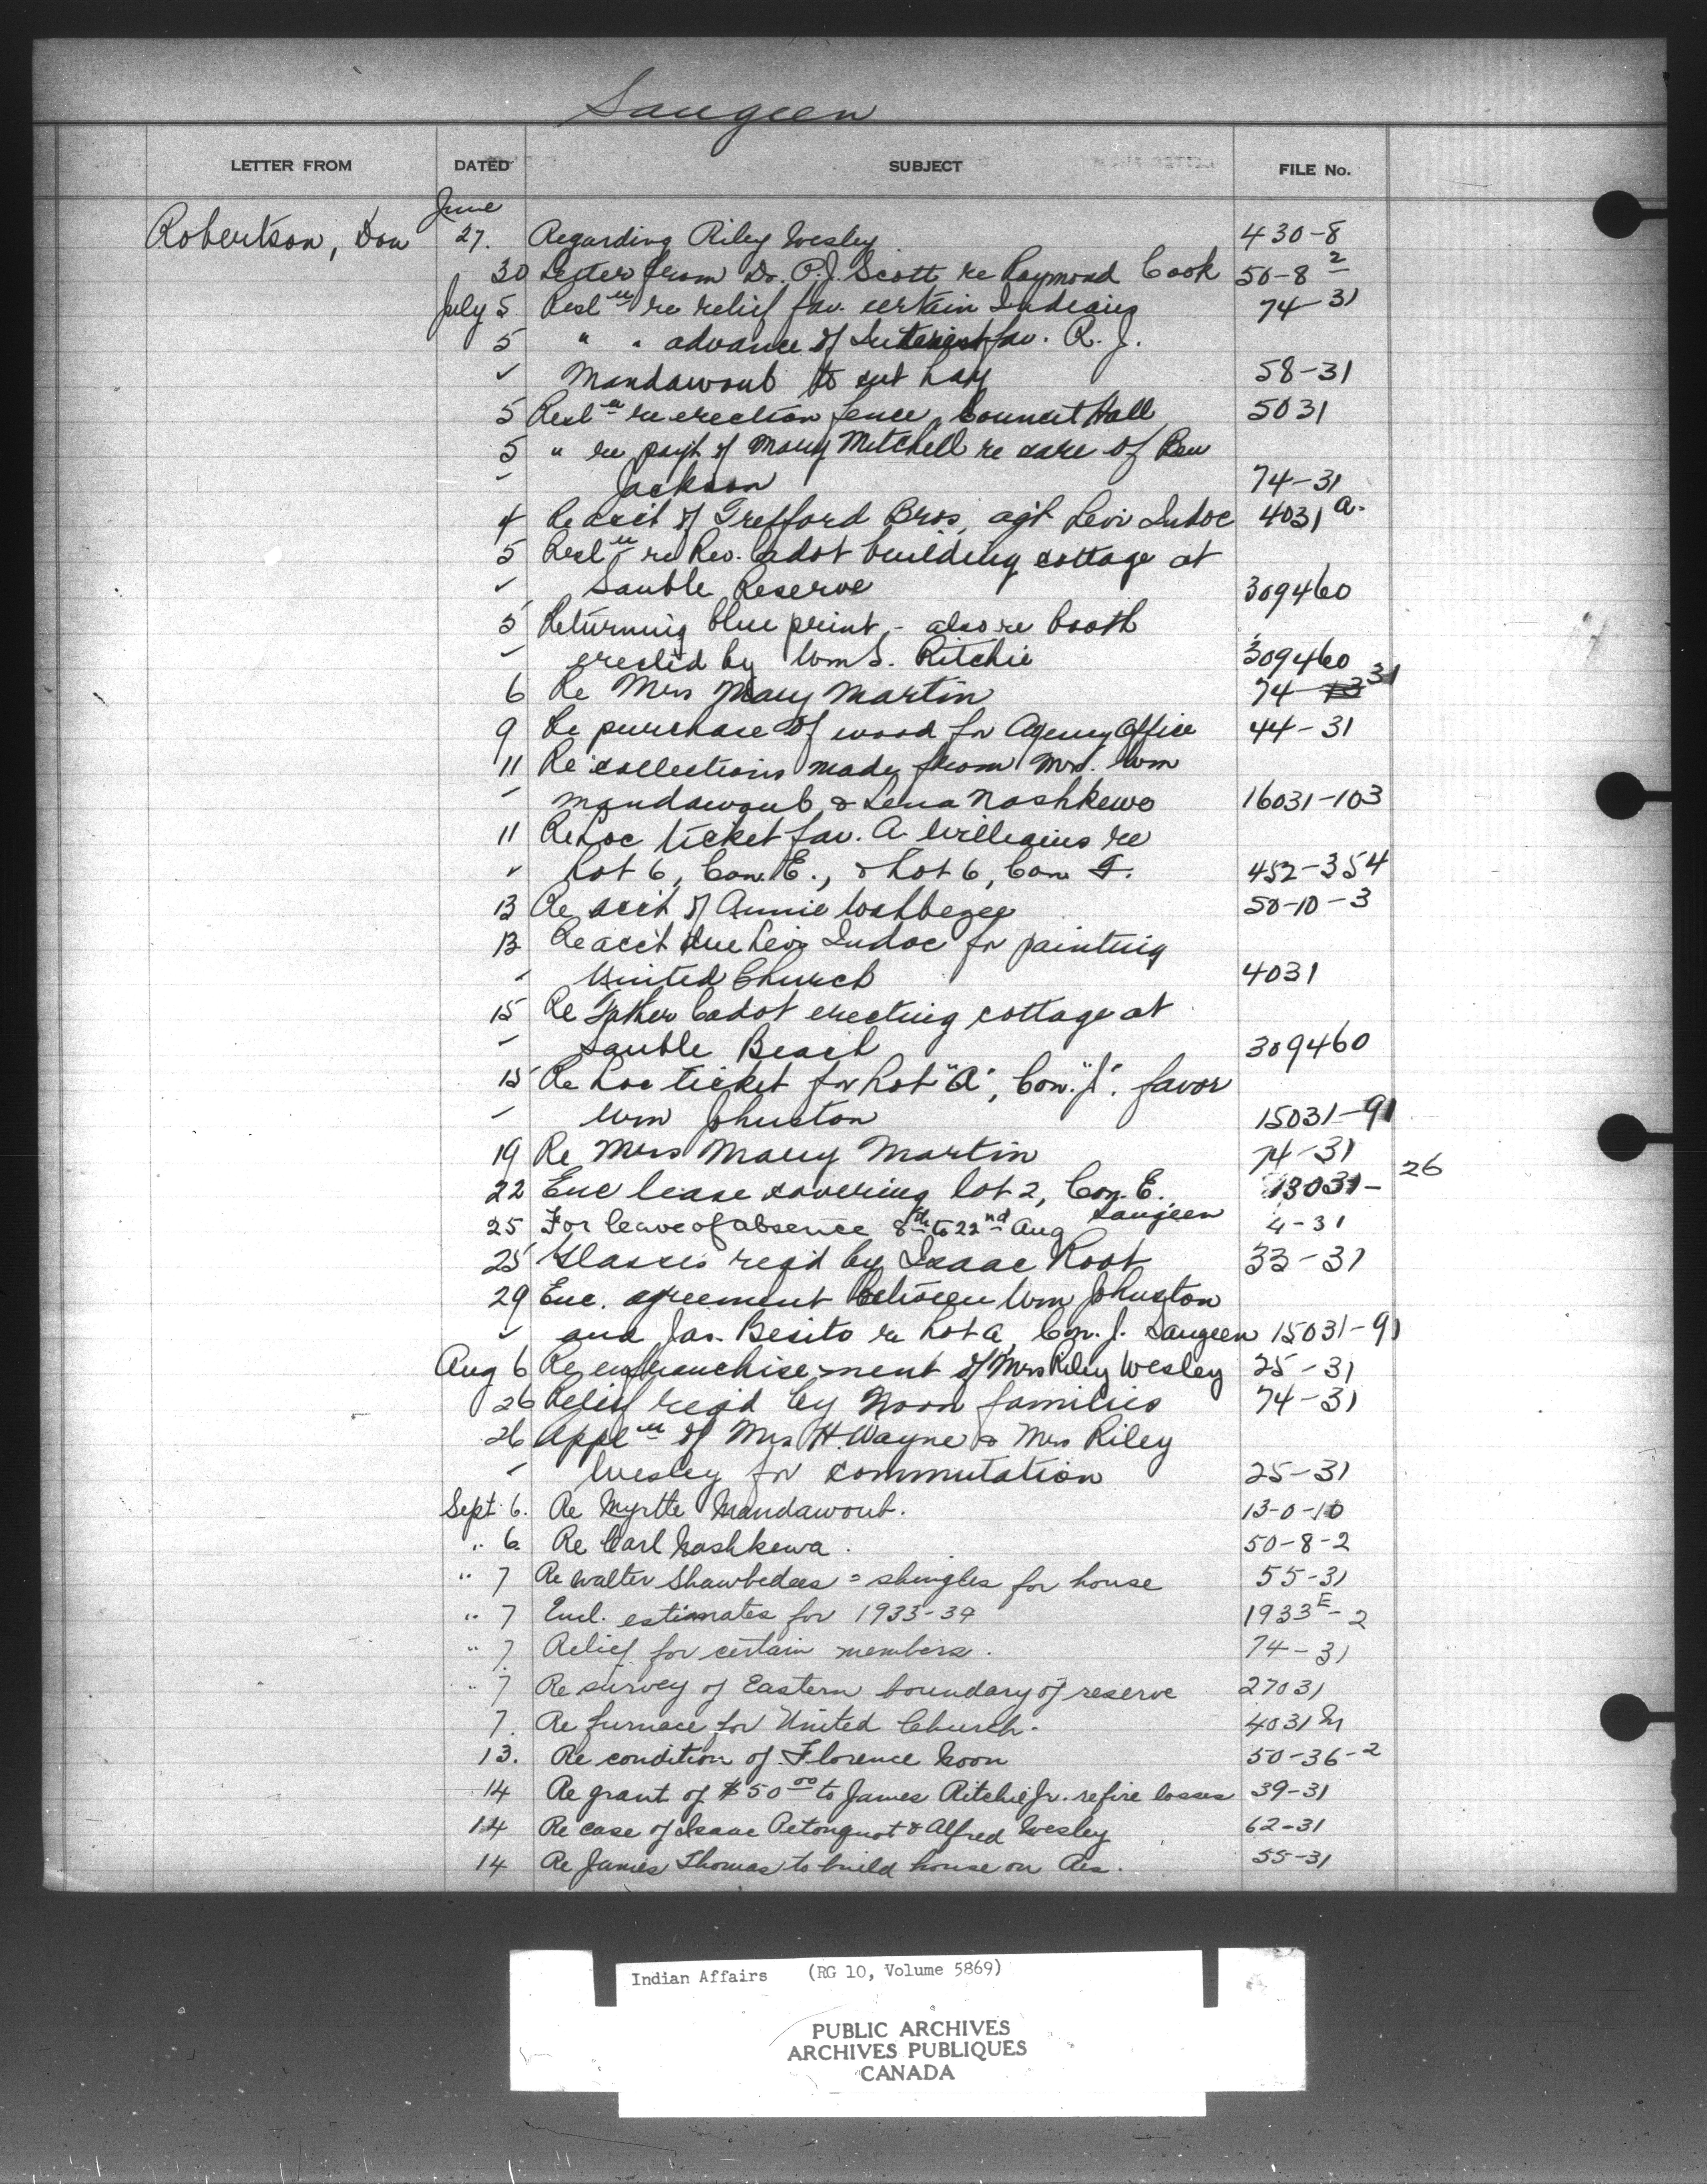 Saugeen
LETTER FROM DATED SUBJECT FILE No.
June
Robertson, Don 27. Regarding Riley Wesley. 430-8
30 Letter from Dr. P.J. Scott re Raymond Cook 50-8-2
July 5 Resl'n re relief fav. certain Indians 74-31
5 " " advance of Interest fav. R. J.
✓ Mandawoub to cut hay 58-31
5 Resl'n re erection fence, Council Hall 5031
5 " re payt of Mary Mitchell re care of Ben
Jackson 74-31
4 Re acct of Trefford Bros, agt Levi Indoc 4031 a.
5 Resl'n re Rev. Cadot building cottage at
✓ Sauble Reserve 309460
5 Returning blue print, - also re booth
erected by Wm S. Ritchie 309460
6 Re Mrs Mary Martin 74-13 31
9 Re purchase of wood for Agency Office 44-31
11 Re collections made from Mrs. Wm
Mandawoub & Lena Nashkewo 16031-103
11 Re Loc ticket fav. A. Williams re
✓ Lot 6, Con. E., & Lot 6, Con F. 452-354
13 Re acct of Annie Washbezee 50-10-3
13 Re acc't due Levi Indoc for painting
United Church 4031
15 Re Father Cadot erecting cottage at
Sauble Beach 309460
15 Re Loc ticket for Lot "A", Con. "J". favor
Wm Johnston 15031-91
19 Re Mrs Mary Martin 74-31
22 Enc lease covering lot 2, Con. E. 13031- 26
Saugeen
25 For leave of absence 8th to 22nd Aug 4-31
25 Glasses reqd by Isaac Root 33-31
29 Enc. agreement between Wm Johnston
✓ and Jas. Besito re Lot A, Con. J. Saugeen 15031-91
Aug 6 Re enfranchise-ment of Mrs Riley Wesley 25-31
26 Relief reqd by Noon families 74-31
26 Appl'n of Mrs H. Wayne & Mrs Riley
Wesley for commutation 25-31
Sept. 6. Re Myrtle Mandawoub. 13-0-10
" 6. Re Carl Nashkewa. 50-8-2
" 7 Re Walter Shawbedees = shingles for house 55-31
" 7 Encl. estimates for 1933-34 1933E-2
" 7. Relief for certain members. 74-31
" 7 Re survey of Eastern boundary of reserve 27031
7. Re furnace for United Church. 4031 M
13. Re condition of Florence Noon 50-36-2
14 Re grant of $50.00 to James Ritchie Jr. re fire losses 39-31
14 Re case of Isaac Petonquot & Alfred Wesley 62-31
14 Re James Thomas to build house on Res. 55-31
Indian Affairs (RG 10, Volume 5869)
PUBLIC ARCHIVES
ARCHIVES PUBLIQUES
CANADA